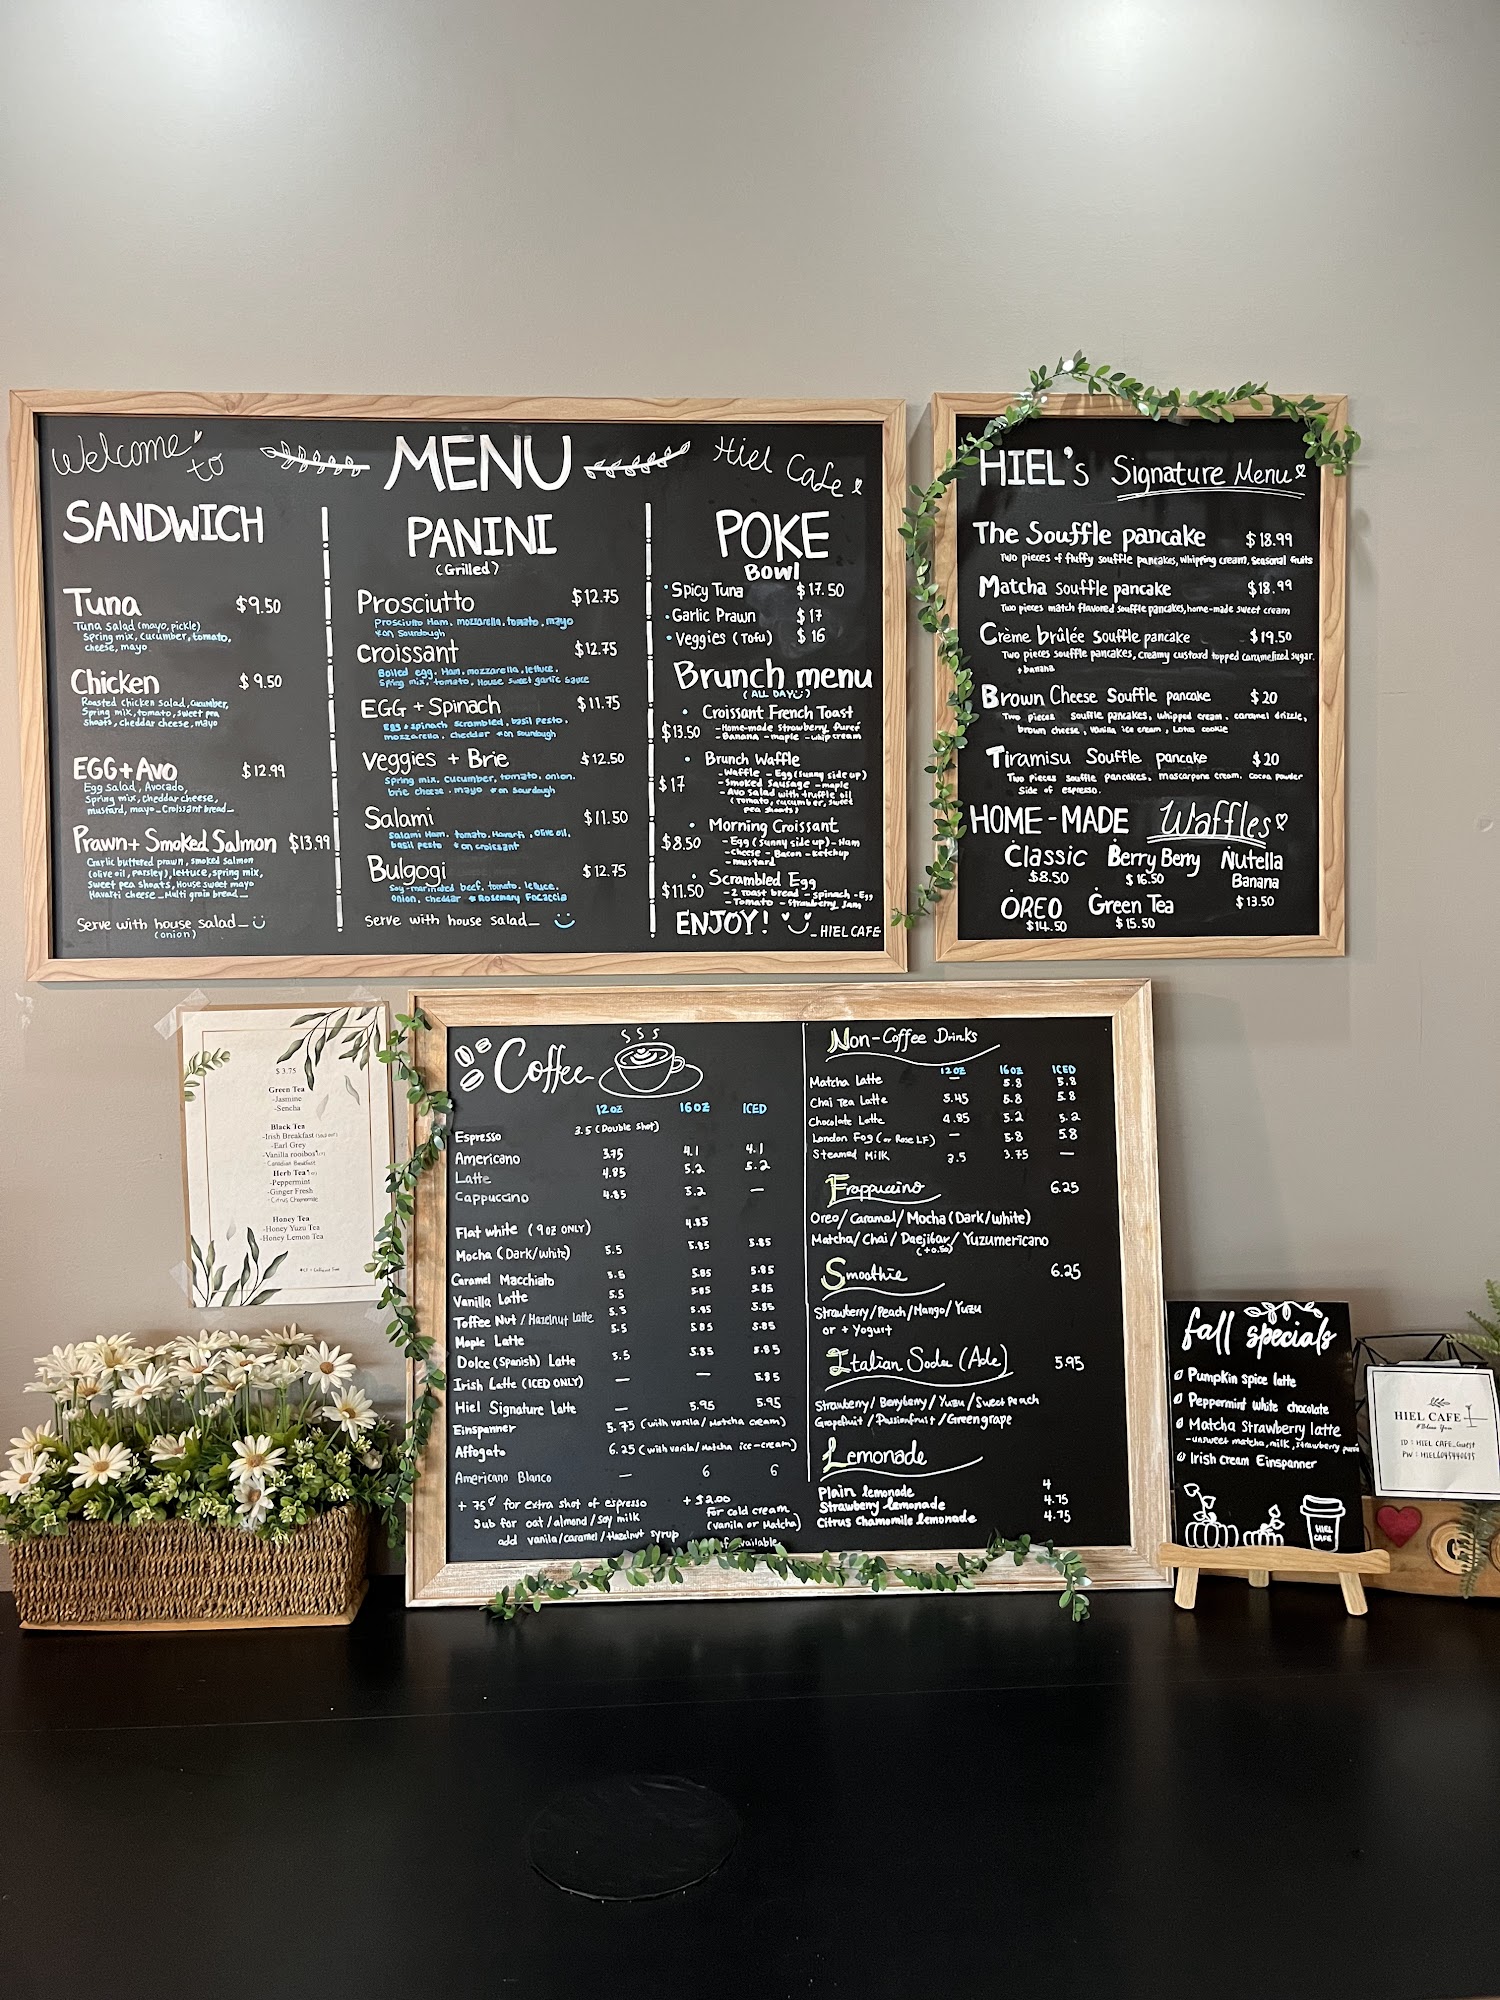 Welcome to
MENU
Hiel Cafe
SANDWICH
Tuna $9.50
Tuna salad (mayo, pickle)
spring mix, cucumber, tomato,
cheese, mayo
Chicken $9.50
Roasted chicken salad, cucumber,
Spring mix, tomato, sweet pea
shoats, cheddar cheese, mayo
EGG+Avo $12.99
Egg salad, Avocado,
Spring mix, cheddar cheese,
mustard, mayo_Croissant bread_
Prawn+ Smoked Salmon $13.99
Garlic buttered prawn, smoked salmon
(olive oil, parsley), lettuce, spring mix,
Sweet pea shoats, House sweet mayo
Havalti cheese_Malti grain bread_
Serve with house salad_
(onion)
PANINI
(Grilled)
Prosciutto $12.75
Prosciutto Ham, mozzarella, tomato, mayo
*on Sourdough
Croissant $12.75
Boiled egg, Ham, mozzarella, lettuce,
Spring mix, tomato, House sweet garlic sauce
EGG + Spinach $11.75
Egg + spinach scrambled, basil pesto,
mozzarella, cheddar *on sourdough
Veggies + Brie $12.50
Spring mix, cucumber, tomato, onion,
brie cheese, mayo *on sourdough
Salami $11.50
Salami Ham, tomato, Havarti, olive oil,
basil pesto *on croissant
Bulgogi $12.75
Soy-marinated beef, tomato, lettuce,
onion, cheddar *Rosemary Focaccia
Serve with house salad_
POKE
Bowl
• Spicy Tuna $17.50
• Garlic Prawn $17
• Veggies (Tofu) $16
Brunch menu
(ALL DAY)
• Croissant French Toast
$13.50 -Home-made strawberry pureé
-Banana -maple -whip cream
• Brunch Waffle
$17 -Waffle -Egg (sunny side up)
-Smoked sausage -maple
-Avo salad with truffle oil
(Tomato, cucumber, sweet
pea shoats)
• Morning Croissant
$8.50 -Egg (sunny side up) -Ham
-cheese -Bacon -ketchup
-mustard
• Scrambled Egg
$11.50 -2 toast bread -spinach -Egg
-Tomato -Strawberry jam
ENJOY! _HIEL CAFE
HIEL's Signature Menu
The Souffle pancake $18.99
Two pieces of fluffy souffle pancakes, whipping cream, seasonal fruits
Matcha souffle pancake $18.99
Two pieces match flavored souffle pancakes, home-made sweet cream
Crème brûlée Souffle pancake $19.50
Two pieces souffle pancakes, creamy custard topped caramelized sugar.
+banana
Brown Cheese Souffle pancake $20
Two pieces souffle pancakes, whipped cream, caramel drizzle,
brown cheese, vanilla ice cream, Lotus cookie
Tiramisu Souffle pancake $20
Two pieces Souffle pancakes, mascarpone cream, cocoa powder
Side of espresso.
HOME-MADE Waffles
Classic
$8.50
Berry Berry
$16.50
Nutella
Banana
$13.50
OREO
$14.50
Green Tea
$15.50
$3.75
Green Tea
-Jasmine
-Sencha
Black Tea
-Irish Breakfast (SOLD OUT)
-Earl Grey
-Vanilla rooibos
-Canadian Breakfast
Herb Tea
-Peppermint
-Ginger Fresh
-Citrus Chamomile
Honey Tea
-Honey Yuzu Tea
-Honey Lemon Tea
Coffee
12oz 16oz ICED
Espresso 3.5 (Double shot)
Americano 3.75 4.1 4.1
Latte 4.85 5.2 5.2
Cappuccino 4.85 5.2 —
Flat white (9oz ONLY) 4.85
Mocha (Dark/White) 5.5 5.85 5.85
Caramel Macchiato 5.5 5.85 5.85
Vanilla Latte 5.5 5.85 5.85
Toffee Nut / Hazelnut Latte 5.5 5.85 5.85
Maple Latte 5.5 5.85 5.85
Dolce (Spanish) Latte 5.5 5.85 5.85
Irish Latte (ICED ONLY) — — 5.85
Hiel Signature Latte — 5.95 5.95
Einspanner 5.75 (with vanila/Matcha cream)
Affogato 6.25 (with vanila/Matcha ice-cream)
Americano Blanco — 6 6
+ 75¢ for extra shot of espresso
Sub for oat/almond/soy milk
add vanila/caramel/Hazelnut syrup
+ $2.00
for cold cream
(vanila or Matcha)
if available
Non-Coffee Drinks
12oz 16oz ICED
Matcha Latte — 5.8 5.8
Chai Tea Latte 5.45 5.8 5.8
Chocolate Latte 4.85 5.2 5.2
London Fog (or Rose LF) — 5.8 5.8
Steamed Milk 3.5 3.75 —
Frappuccino 6.25
Oreo/Caramel/Mocha (Dark/white)
Matcha/Chai/Daejibar/Yuzumericano
(+0.50)
Smoothie 6.25
Strawberry/Peach/Mango/Yuzu
or + Yogurt
Italian Soda (Ade) 5.95
Strawberry/Berryberry/Yuzu/Sweet Peach
Grapefruit/Passionfruit/Greengrape
Lemonade
Plain lemonade 4
Strawberry lemonade 4.75
Citrus Chamomile lemonade 4.75
fall specials
Pumpkin spice latte
Peppermint white chocolate
Matcha Strawberry latte
-unsweet matcha, milk, strawberry
Irish cream Einspanner
HIEL CAFE
HIEL CAFE
ID : HIEL CAFE_Guest
PW : HIEL6045440615